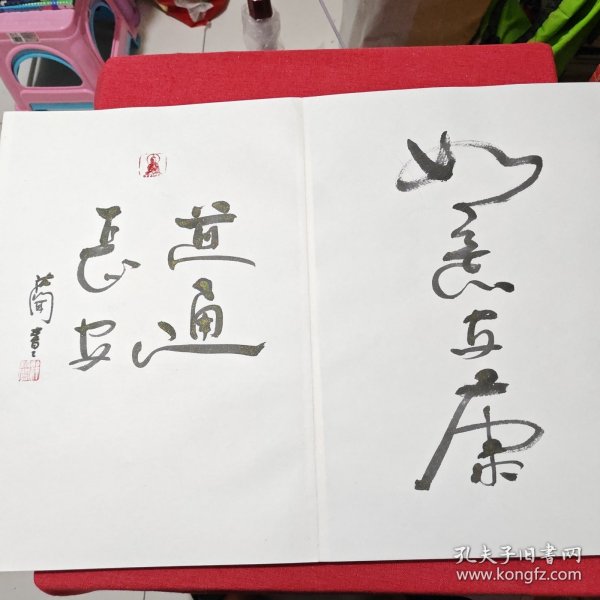 如意安康
道通
長安
蘭書
孔夫子旧书网
www.kongfz.com